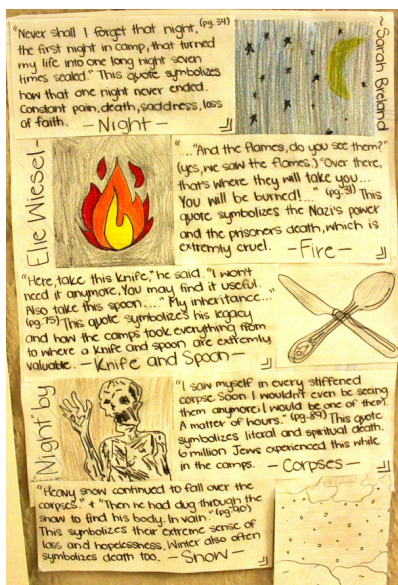 "Never shall I forget that night, (pg.34)
the first night in camp, that turned
my life into one long night seven
times sealed." This quote symbolizes
how that one night never ended.
Constant pain, death, saddness, loss
of faith. -Night-
~Sarah Breland
Elie Wiesel-
"..."And the flames, do you see them?"
(yes, we saw the flames.) "Over there,
that's where they will take you...
You will be burned!..." (pg.31) This
quote symbolizes the Nazi's power
and the prisoners death, which is
extremely cruel. -Fire-
"Here, take this knife," he said. "I won't
need it anymore. You may find it useful.
Also take this spoon...." My inheritance..."
(pg.75) This quote symbolizes his legacy
and how the camps took everything from
to where a knife and spoon are extremly
valuable. -Knife and Spoon-
Night by
"I saw myself in every stiffened
corpse. Soon I wouldn't even be seeing
them anymore; I would be one of them.
A matter of hours." (pg.89) This quote
symbolizes literal and spiritual death.
6 million Jews experienced this while
in the camps. -Corpses-
"Heavy snow continued to fall over the
corpses." + "Then he had dug through the
snow to find his body. In vain." (pg.90)
This symbolizes their extreme sense of
loss and hopelessness. Winter also often
symbolizes death too. -Snow-